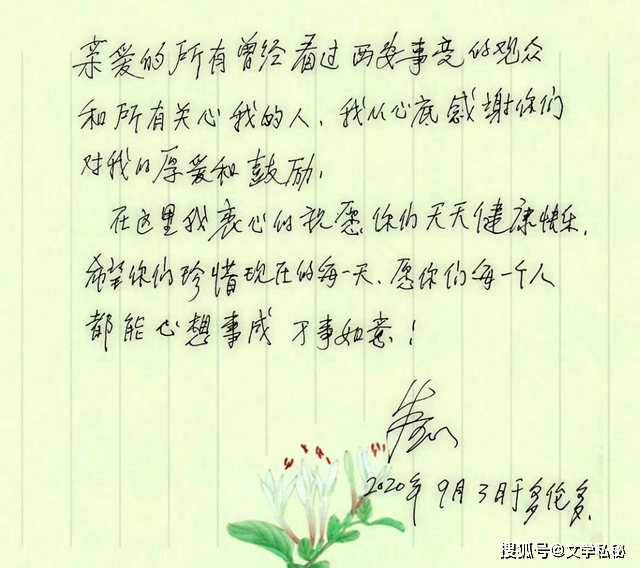 亲爱的所有曾经看过西安事变的观众
和所有关心我的人、我从心底感謝你们
对我的厚爱和鼓励,
在这里我衷心的祝愿你们天天健康快乐,
希望你们珍惜现在的每一天、愿你们每一个人
都能心想事成 万事如意！
2020年9月3日于多伦多.
搜狐号@文学私秘